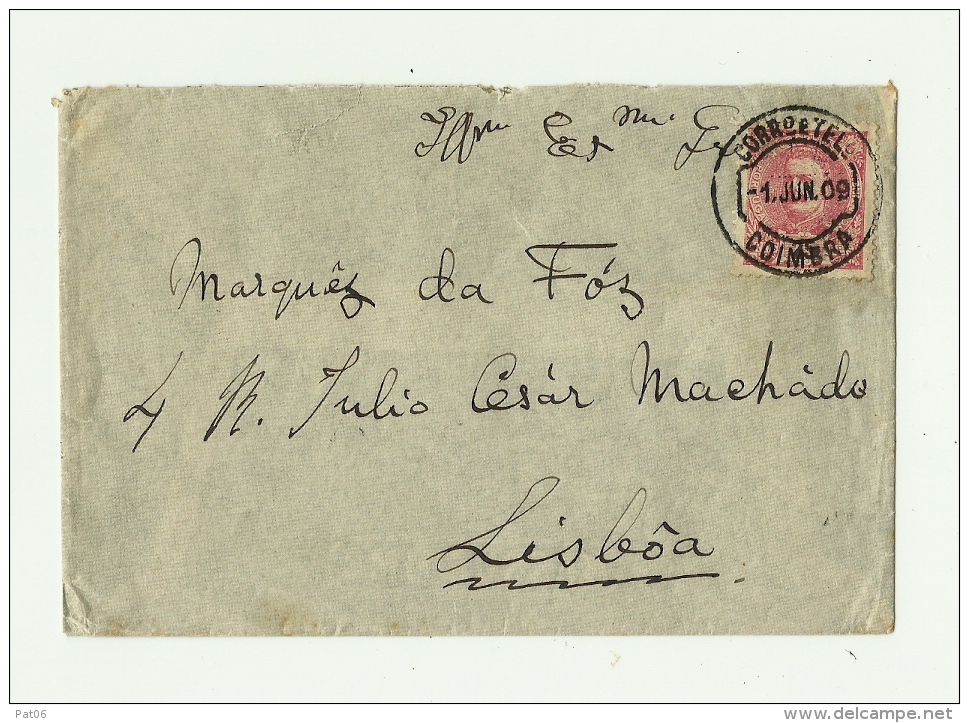 Illmo Exmo Sr
CORRO E TELO
-1. JUN. 09
COIMBRA
Marquêz da Fóz
4 R. Julio César Machádo
Lisbôa
Pat06
www.delcampe.net